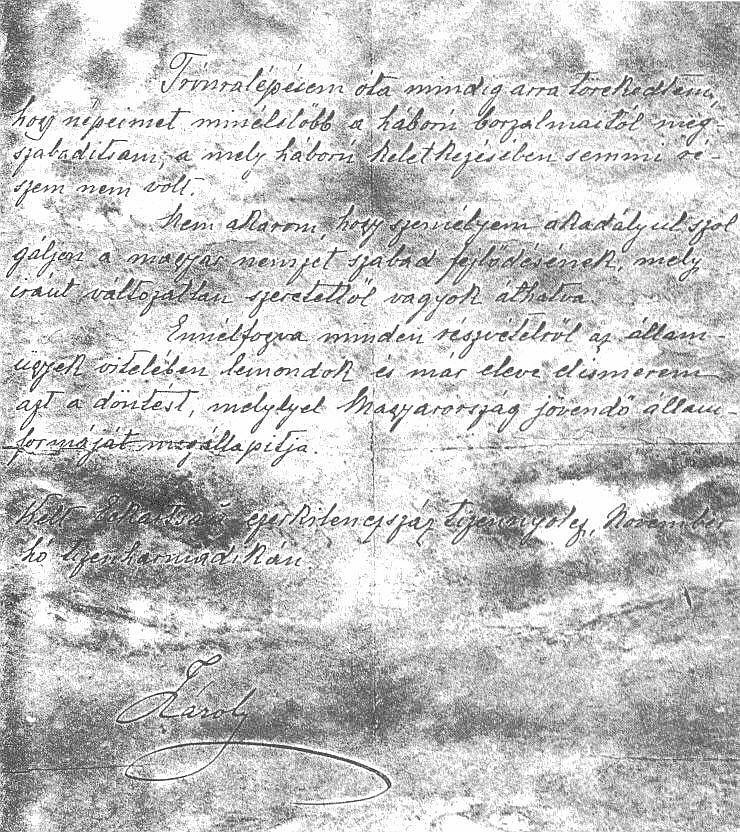 Trónralépésem óta mindig arra törekedtem,
hogy népeimet minélelőbb a háború borzalmaitól meg-
szabadítsam, a mely háború keletkezésében semmi ré-
szem nem volt.
Nem akarom, hogy személyem akadályul szol
gáljon a magyar nemzet szabad fejlődésének, mely
iránt változatlan szeretettől vagyok áthatva.
Ennélfogva minden részvételről az állam-
ügyek vitelében lemondok és már eleve elismerem
azt a döntést, melylyel Magyarország jövendő állam-
formáját megállapítja.
Kelt Eckartsau ezerkilencszáz tizennyolcz, November
hó tizenharmadikán.
Károly